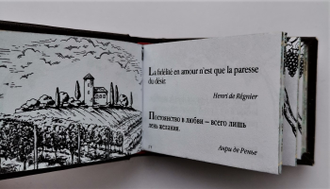 La fidélité en amour n'est que la paresse
du désir.
Henri de Régnier
Постоянство в любви – всего лишь
лень желания.
Анри де Ренье